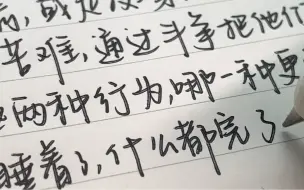 苦难，通过斗争把他们
两种行为，哪一种更
睡着了，什么都完了